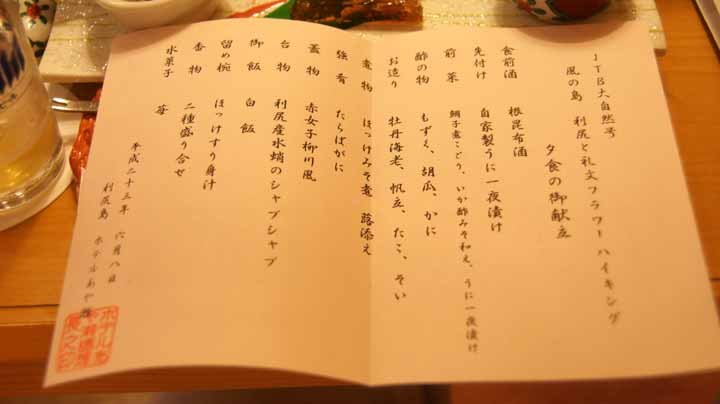 JTB大自然号
風の島 利尻と礼文フラワーハイキング
夕食の御献立
食前酒 根昆布酒
先付け 自家製うに一夜漬け
前菜 鯛子煮こごり、いか酢みそ和え、うに一夜漬け
酢の物 もずく、胡瓜、かに
お造り 牡丹海老、帆立、たこ、そい
煮物 ほっけみそ煮 蕗添え
強肴 たらばがに
蓋物 赤女子柳川風
台物 利尻産水蛸のシャブシャブ
御飯 白飯
留め椀 ほっけすり身汁
香物 二種盛り合せ
水菓子 苺
平成二十三年 六月八日
利尻島 ホテルあや瀬